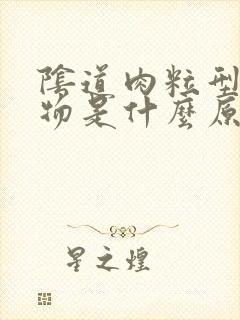 陰道肉粒型
物是什麼原
星之煌